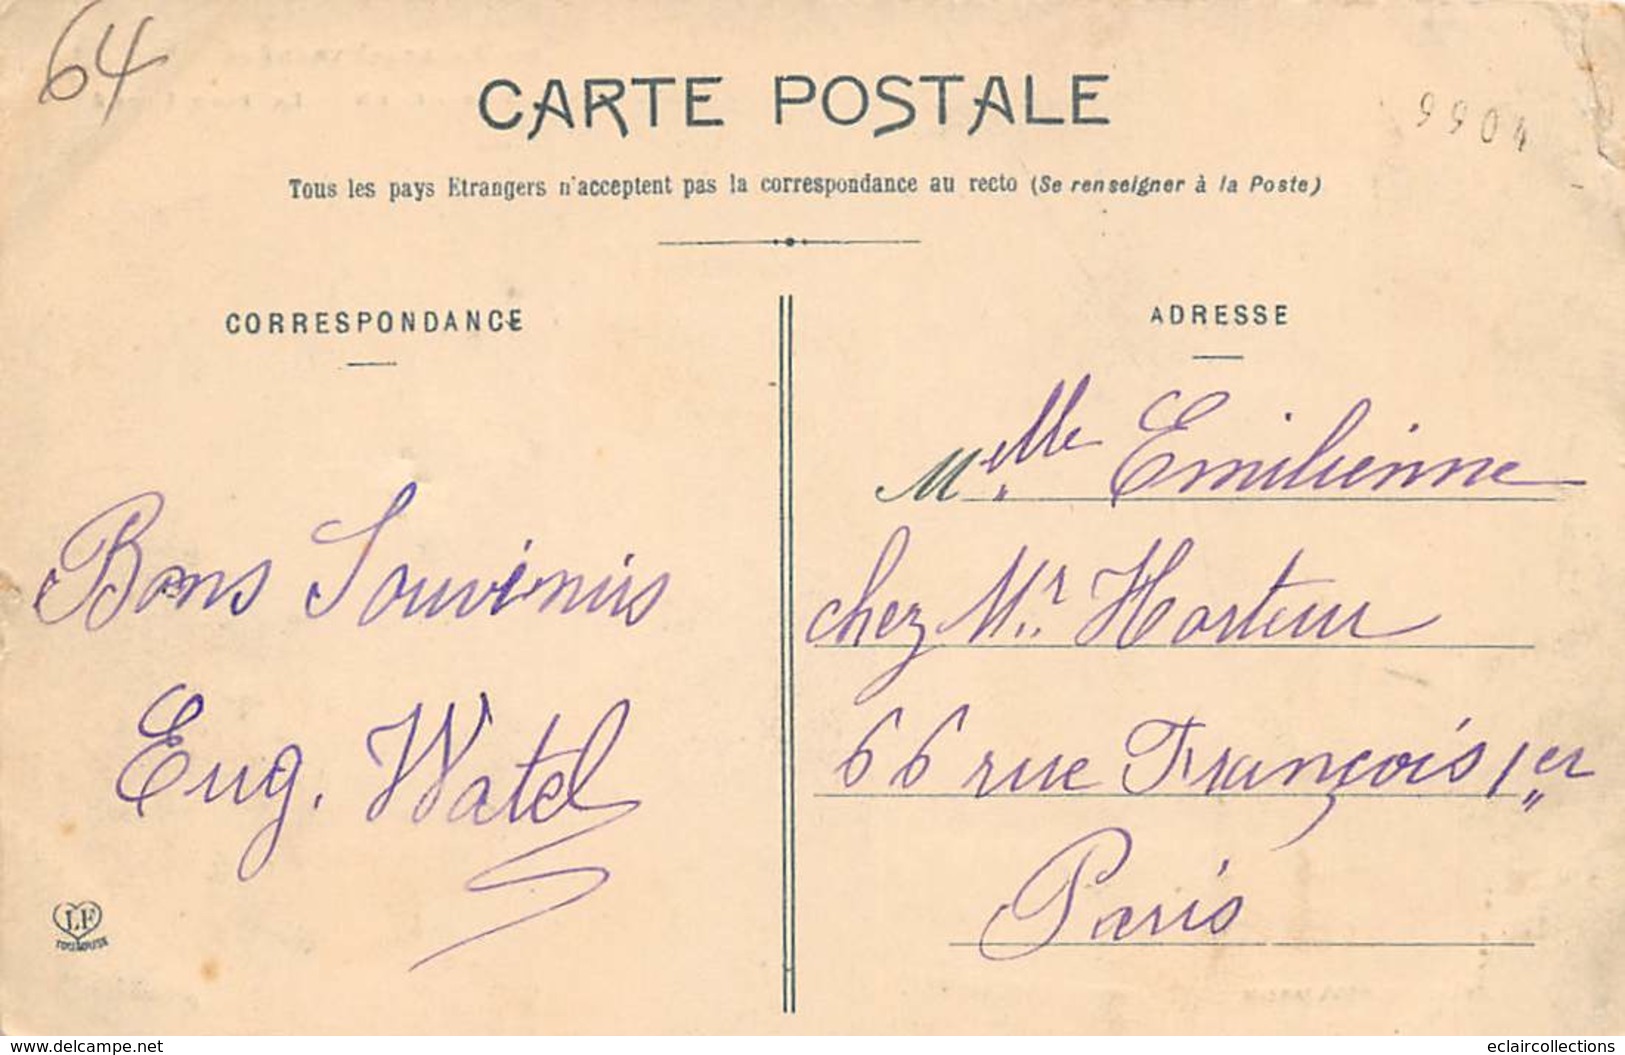 64
CARTE POSTALE
9904
Tous les pays Etrangers n'acceptent pas la correspondance au recto (Se renseigner à la Poste)
CORRESPONDANCE
Bons Souvenirs
Eug. Watel
LF
TOULOUSE
ADRESSE
Melle Emilienne
chez Mr. Horteur
66 rue François 1er
Paris
www.delcampe.net
eclaircollections